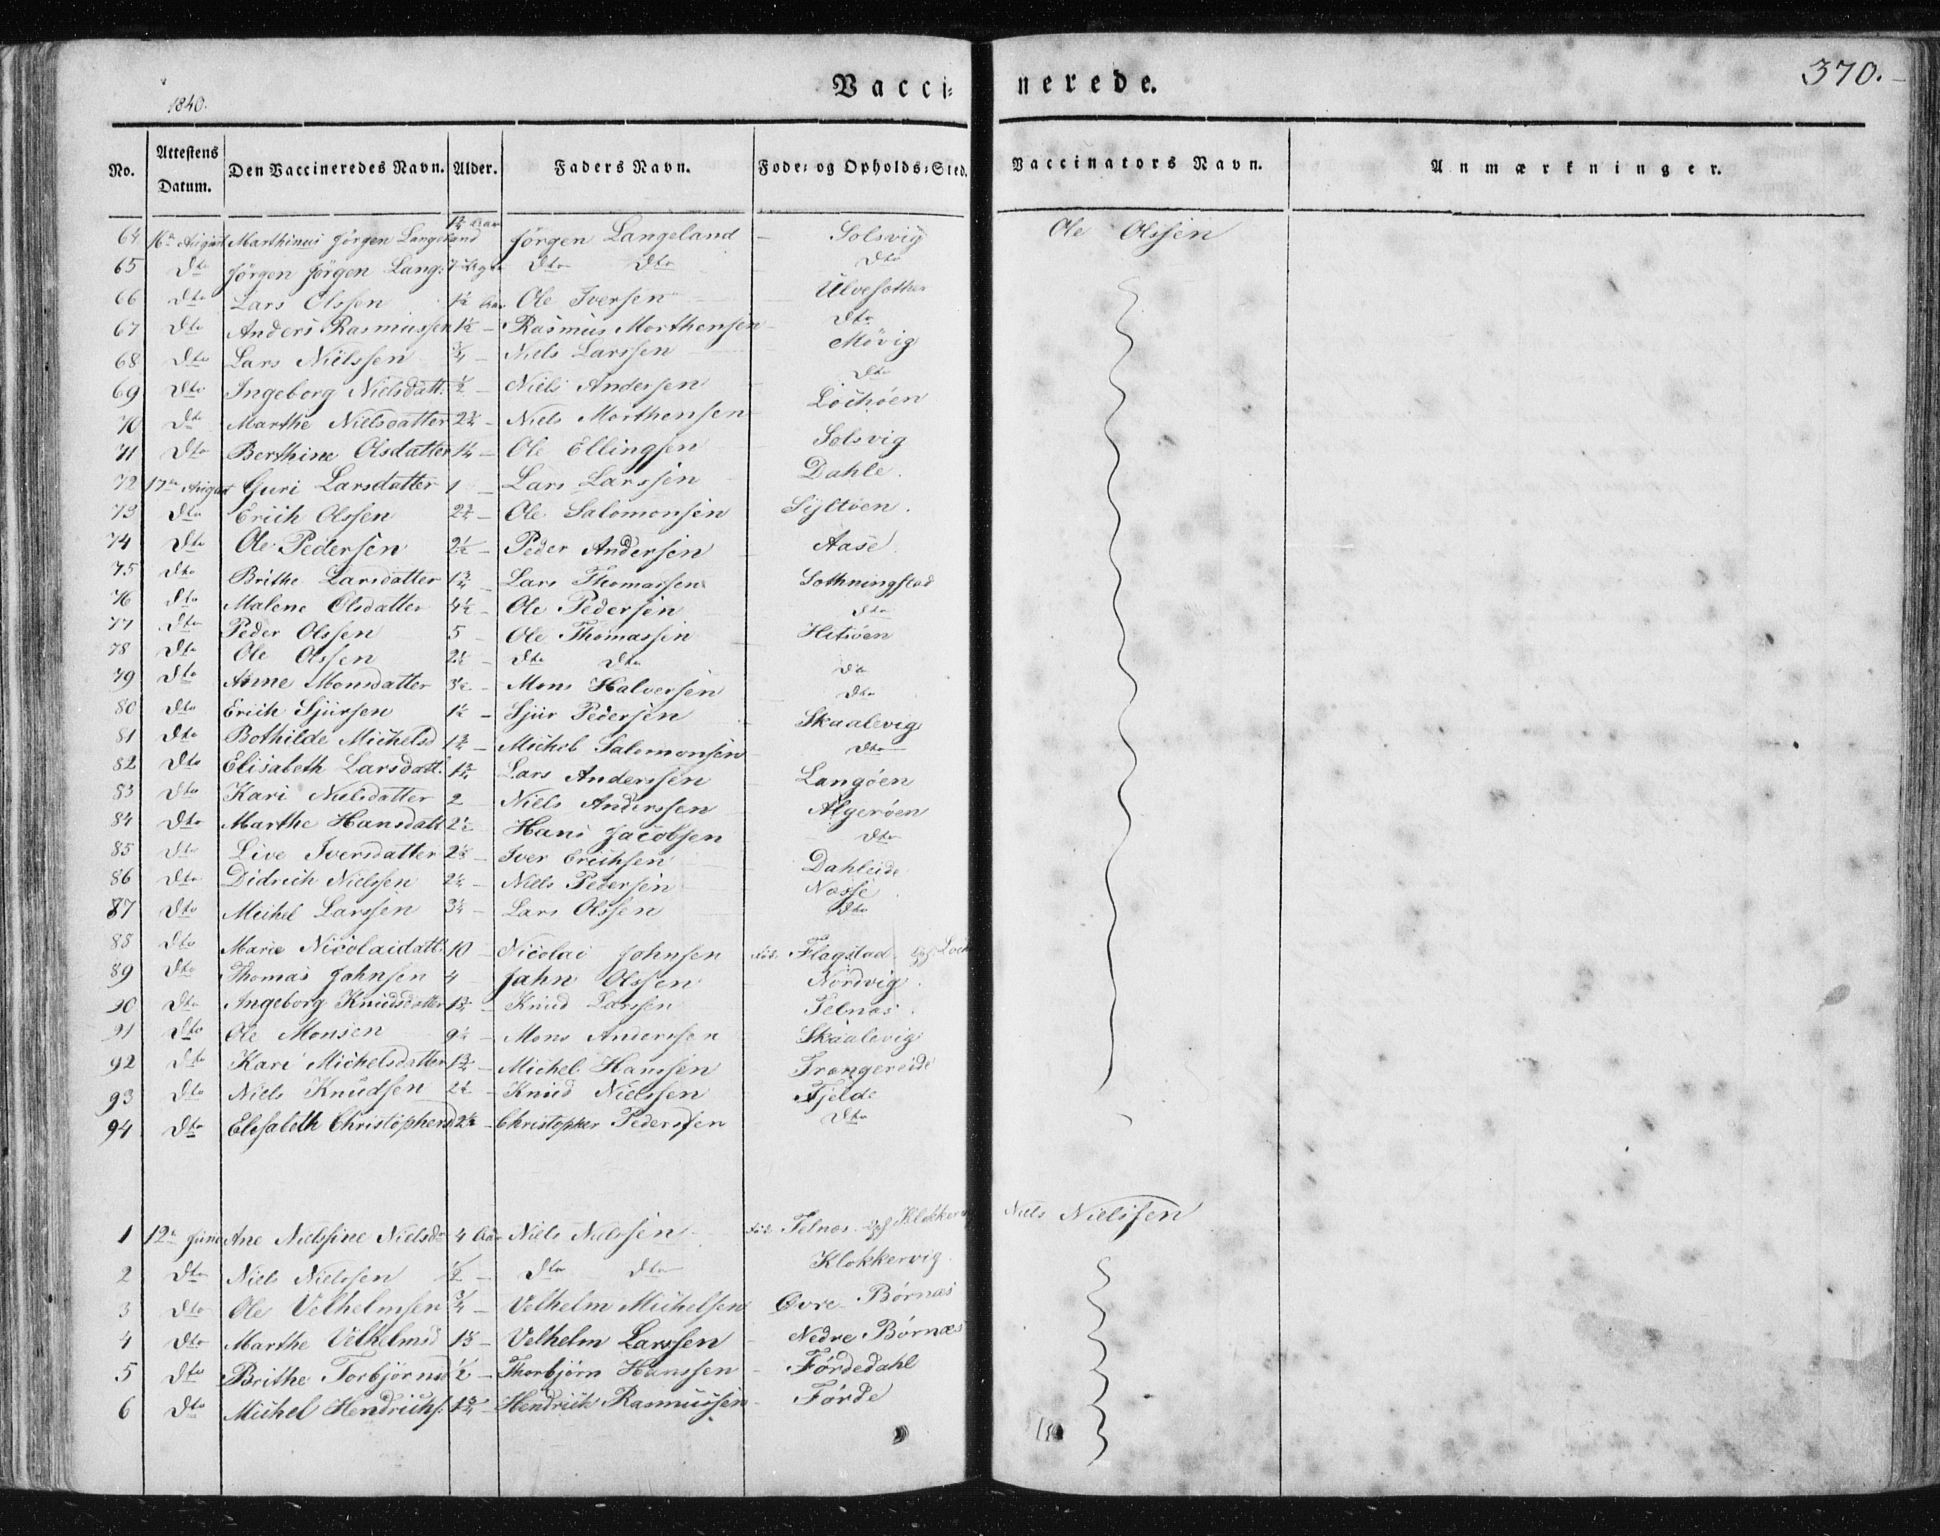 370.
1840.
Vacci- nerede.
No. Attestens Datum. Den Vaccineredes Navn. Alder. Faders Navn. Føde- og Opholds-Sted. Vaccinators Navn. Anmærkninger.
64 16de August Marthinus Jørgen Langeland 1¼ Aar Jørgen Langeland Solsvig Ole Olssen
65 Dto Jørgen Jørgen Lang: 7 Dto Dto Dto
66 Dto Lars Olssen Aar Ole Iversen Ulvesother
67 Dto Anders Rasmussen 1½ Rasmus Morthensen Dto
68 Dto Lars Nielssen ¾ Niels Larssen Møvig
69 Dto Ingeborg Nielsdatt: ½ Niels Anderssen Dto
70 Dto Marthe Nielsdatter Niels Morthensen Lochøen
71 Dto Berthine Olsdatter 1¼ Ole Ellingsen Solsvig
72 17de August Guri Larsdatter 1 Lars Larssen Dahle.
73 Dto Erich Olssen Ole Salomonsen Syltøen.
74 Dto Ole Pedersen 2½ Peder Andersen Aase.
75 Dto Brithe Larsdatter 1¾ Lars Thomassen Sothningstad
76 Dto Malene Olsdatter 4½ Ole Pedersen Dto
77 Dto Peder Olssen 5 Ole Thomassen Hitøen
78 Dto Ole Olssen 2½ Dto Dto Dto
79 Dto Anne Monsdatter Mons Halversen Dto
80 Dto Erich Sjursen 1½ Sjur Pedersen Skaalevig
81 Dto Bothilde Michelsd 1¾ Michel Salomonsen Dto
82 Dto Elisabeth Larsdatt: 1¾ Lars Anderssen Langøen
83 Dto Kari Nielsdatter 2 Niels Anderssen Algerøen
84 Dto Marthe Hansdatt 2½ Hans Jacobsen Dto
85 Dto Live Iversdatter Iver Erichsen Dahleide
86 Dto Didrich Nielssen Niels Pedersen Nøsse.
87 Dto Michel Larssen Lars Olssen Dto
88 Dto Marie Nicolaidatt: 10 Nicolai Johnsen fød: Flagstad
89 Dto Thomas Johnsen 4 Jahn Olssen Nordvig.
90 Dto Angeborg Knudsdatter 1¾ Knud Larssen Telnæs.
91 Dto Ole Monsen Mons Anderssen Skaalevig
92 Dto Kari Michelsdatter 1¾ Michel Hanssen Trangereide
93 Dto Niels Knudsen Knud Nielssen Fjelde
94 Dto Elesabeth Christophersd Christopher Pederssen Dto
1 12te Juni Ane Nielsine Nielsd 4 Aar Niels Nielssen fød: Telnæs. Klokkervig Niels Nielssen
2 Dto Niels Nielssen ½ Dto Dto Klokkervig.
3 Dto Ole Velhelmsen ¾ Velhelm Michelsen Øvre Børnæs
4 Dto Marthe Velhelmsd Velhelm Larssen Nedre Børnæs
5 Dto Brithe Torbjørnsd ½ Thorbjørn Hanssen Førdedahl
6 Dto Michel Hendrichs: 1¾ Hendrick Rasmussen Førde